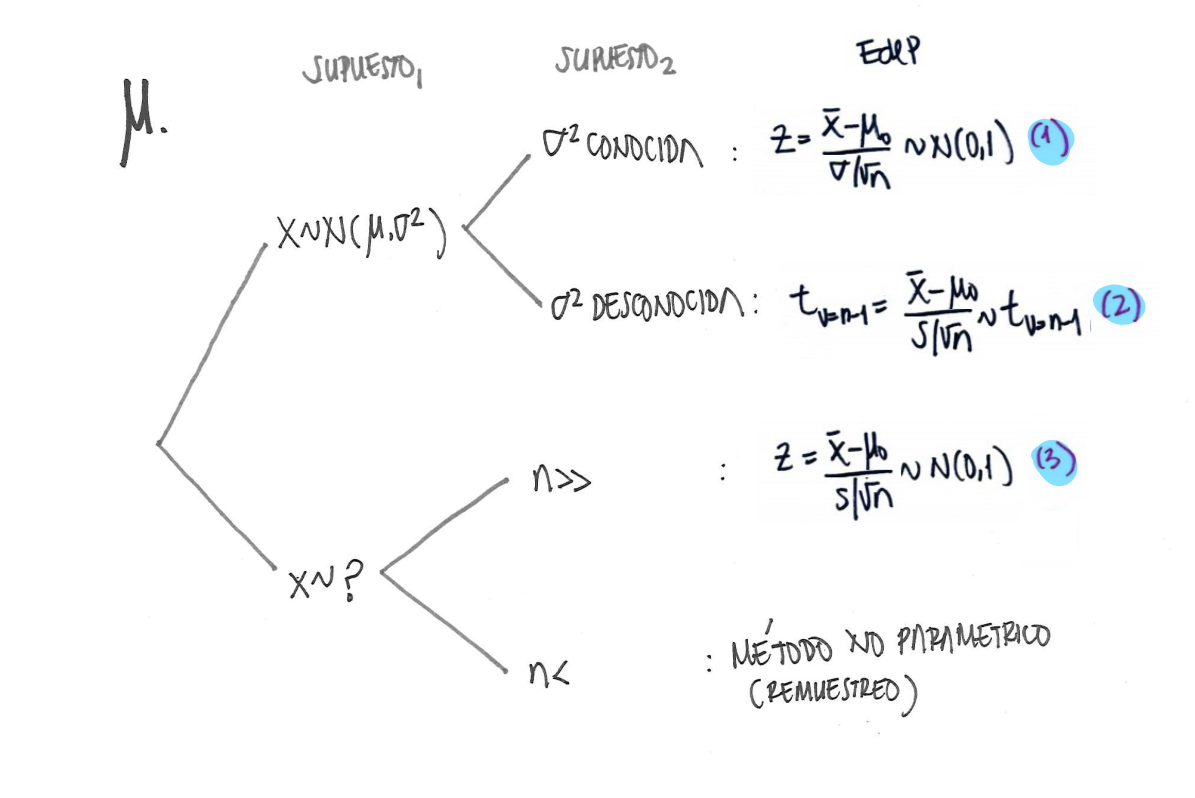 SUPUESTO₁ SUPUESTO₂ EdeP
μ.
σ² CONOCIDA : Z = (x̄-μ₀)/(σ/√n) ~ N(0,1) (1)
X~N(μ,σ²)
σ² DESCONOCIDA: t_{v=n-1} = (x̄-μ₀)/(S/√n) ~ t_{v=n-1}. (2)
n>> : Z = (x̄-μ₀)/(s/√n) ~ N(0,1) (3)
X~?
n< : MÉTODO NO PARAMETRICO
(REMUESTREO)